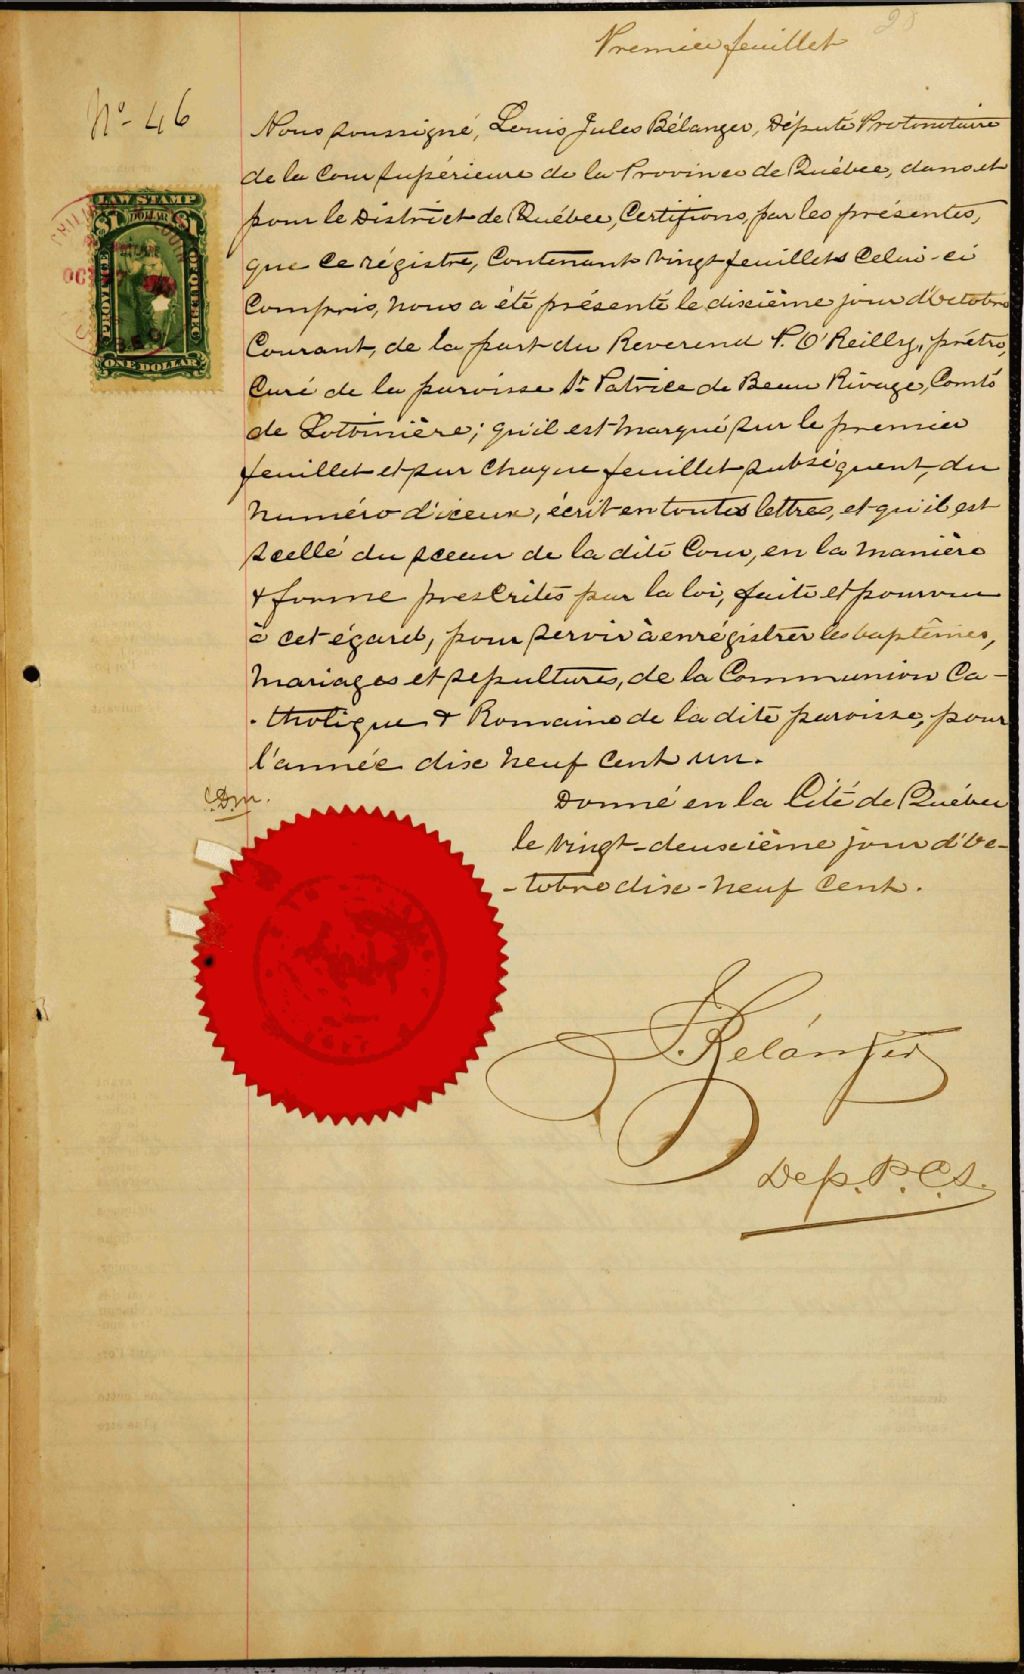 Premier feuillet
28
No 46
Nous soussigné, Louis Jules Bélanger, Député Protonotaire
de la Cour Supérieure de la Province de Québec, dans et
pour le District de Québec, Certifions, par les présentes,
que ce régistre, Contenant vingt feuillets Celui-ci
Compris, nous a été présenté le dixième jour d'Octobre
Courant, de la part du Reverend P. O'Reilly, prêtre,
Curé de la paroisse St Patrice de Beau Rivage, Comté
de Lotbinière; qu'il est marqué sur le premier
feuillet et sur chaque feuillet subséquent, du
numéro d'iceux, écrit en toutes lettres, et qu'il est
scellé du sceau de la dite Cour, en la manière
& forme prescrites par la loi, faite et pourvue
à cet égard, pour servir à enrégistrer les baptêmes,
mariages et sepultures, de la Communion Ca-
-tholique & Romaine de la dite paroisse, pour
l'année dix neuf cent un.
Donné en la Cité de Québec
le vingt-deuxième jour d'Oc-
-tobre dix-neuf cent.
LAW STAMP
$1 DOLLAR $1
PROVINCE OF QUEBEC
ONE DOLLAR
OCT
J. Bélanger
Dep. P. C. S.